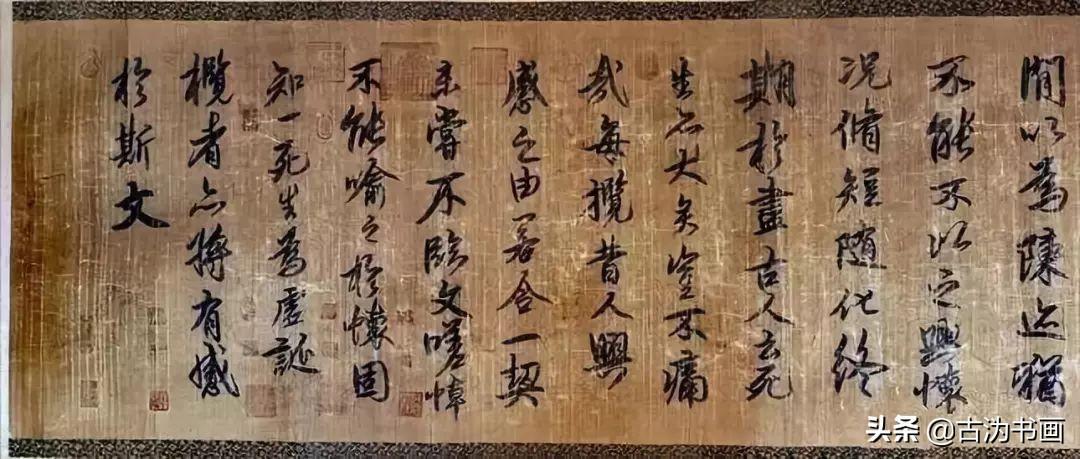 閒以為陳迹猶
不能不以之興懷
況脩短随化終
期於盡古人云死
生亦大矣豈不痛
哉每攬昔人興
感之由若合一契
未嘗不臨文嗟悼
不能喻之於懷固
知一死生為虛誕
攬者亦將有感
於斯文
头条 @古沩书画